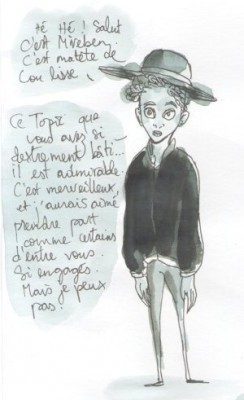 Hé Hé ! Salut
C'est Mireben.
C'est matète de
Cou lisse.
Ce Topic que
vous avez si
destrement bâti...
il est admirable.
C'est merveilleux,
et j'aurais aimé
prendre part
comme certains
d'entre vous.
Si engagés.
Mais je peux
pas.